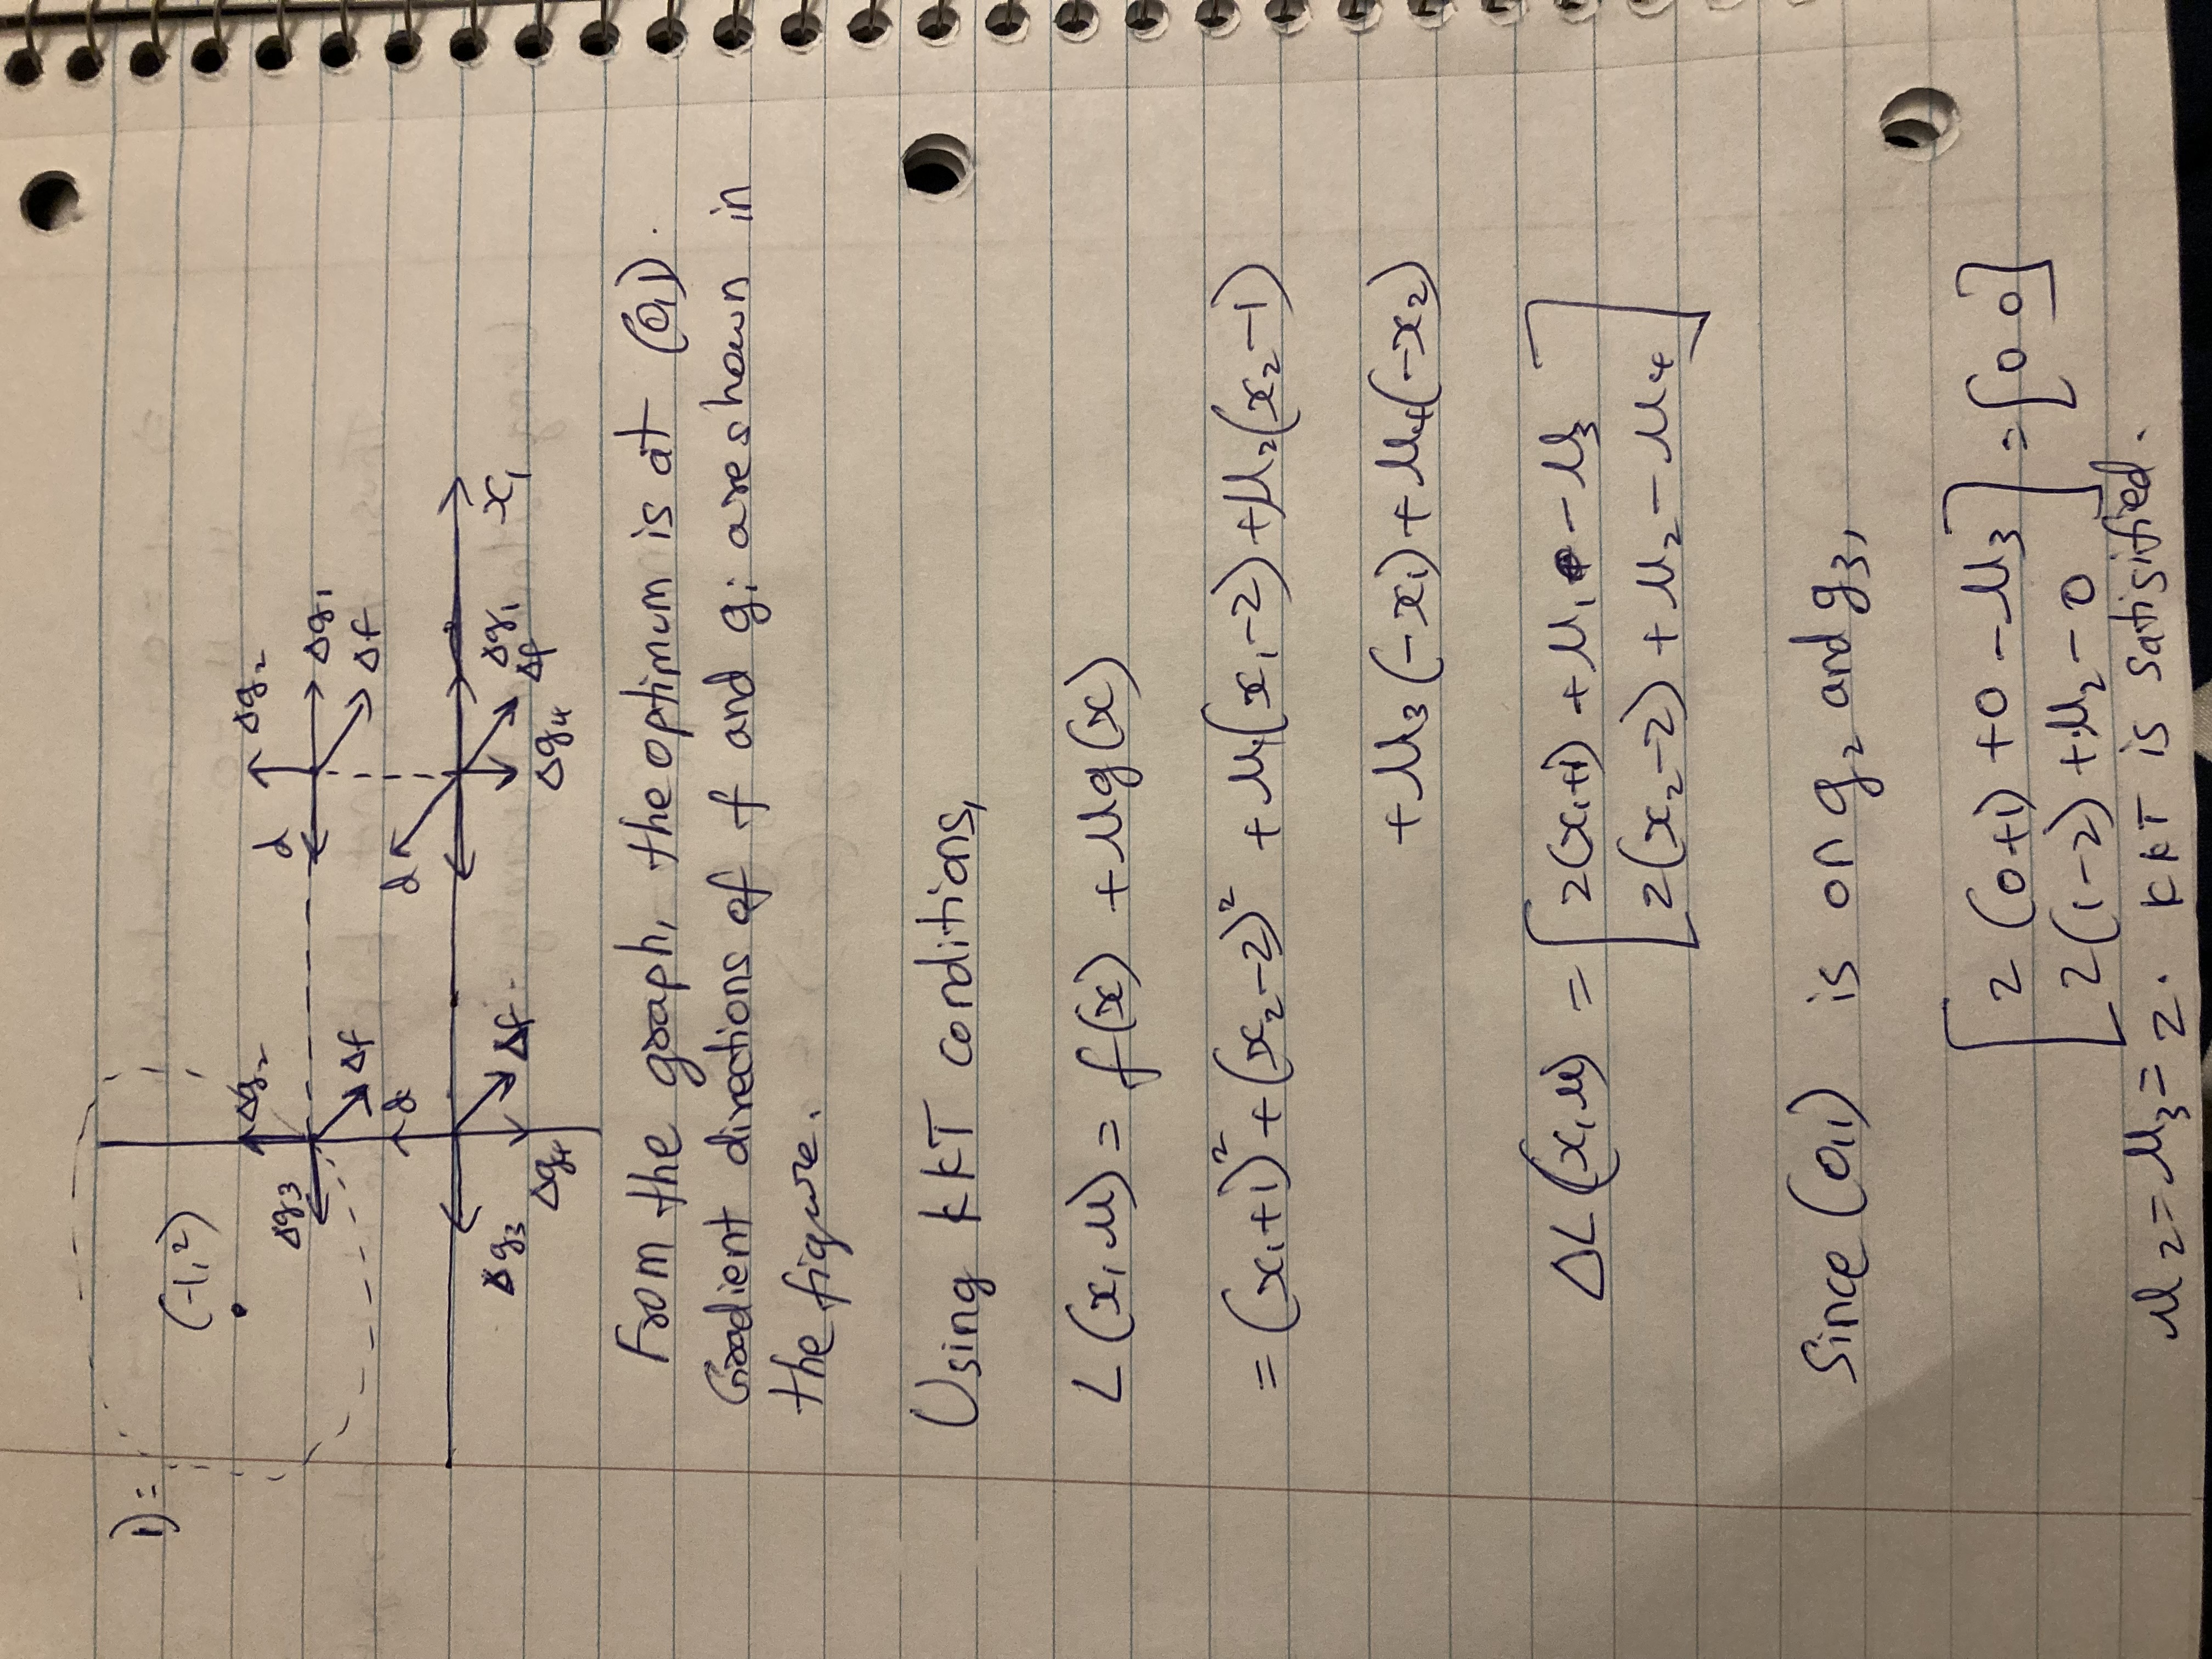 1)=
(-1,2)
Δg₂
Δg₂
d
Δg₃
Δg₁
Δf
Δf
d
d
Δg₃
Δf
Δg₁
x₁
Δg₄
Δg₄
Δf
From the graph, the optimum is at (0,1).
Gradient directions of f and gᵢ are shown in
the figure.
Using KKT conditions,
L(x,μ) = f(x) + μg(x)
= (x₁+1)² + (x₂-2)² + μ₁(x₁-2) + μ₂(x₂-1)
+ μ₃(-x₁) + μ₄(-x₂)
ΔL(x,μ) = [ 2(x₁+1) + μ₁ - μ₃
2(x₂-2) + μ₂ - μ₄ ]
Since (0,1) is on g₂ and g₃,
[ 2(0+1) + 0 - μ₃ ] = [0 0]
2(1-2) + μ₂ - 0
μ₂ = μ₃ = 2. KKT is satisified.